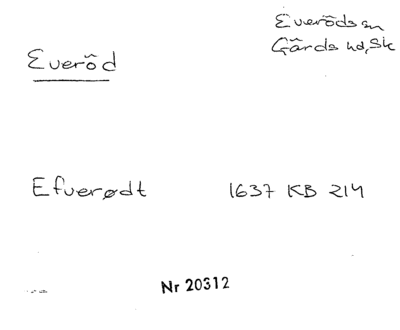 Everöds sn
Gärds hd, Sk
Everöd
Efverødt 1637 KB 214
Nr 20312